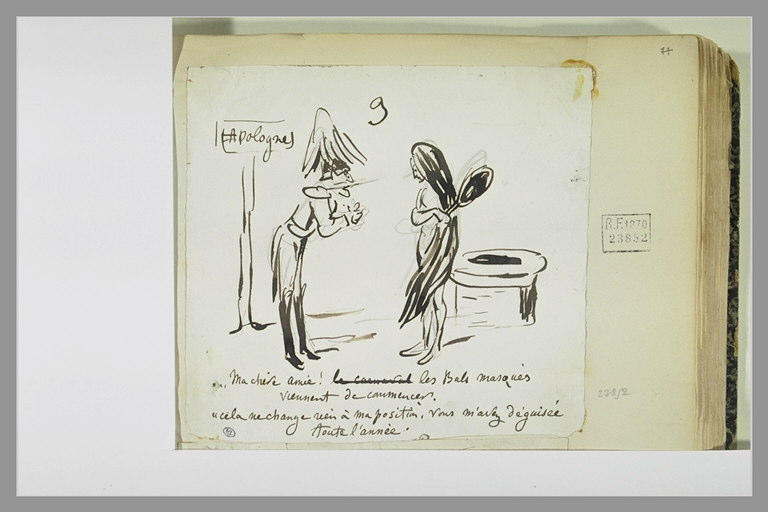 9
LAPologne
... Ma chère amie! le carnaval les Bals masqués
viennent de commencer.
"cela ne change rien à ma position, vous m'avez déguisée
toute l'année.
R.F.1870
23852
23852